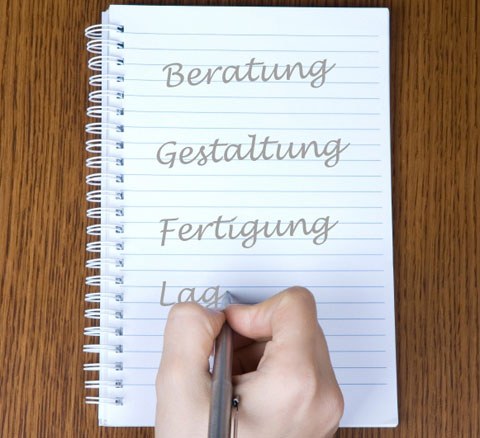 Beratung
Gestaltung
Fertigung
Lag